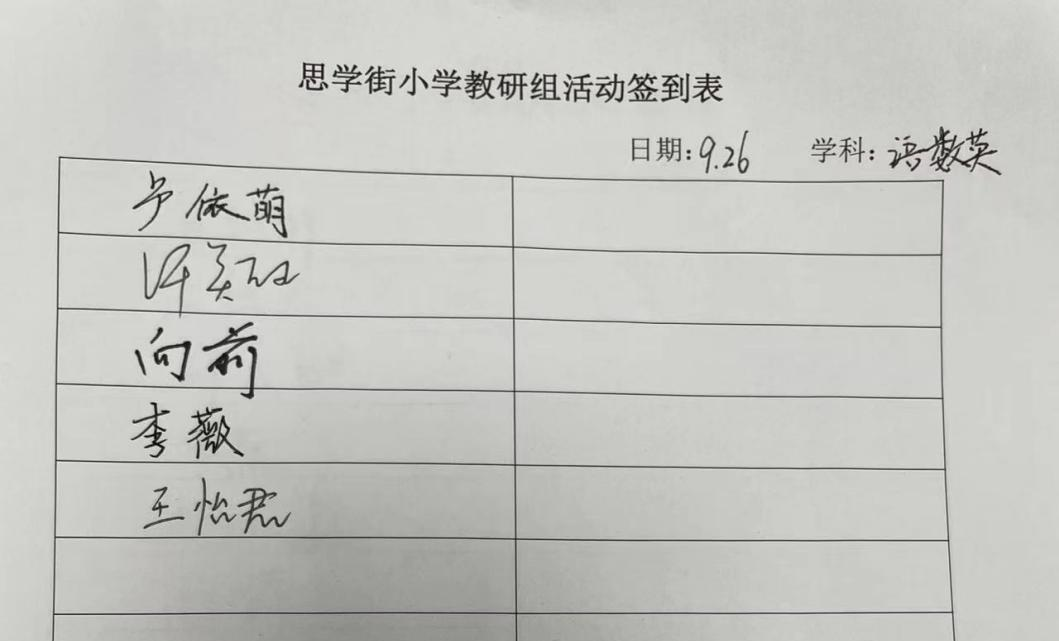 思学街小学教研组活动签到表
日期:9.26 学科:语数英
卢依萌
向前
李薇
王怡君